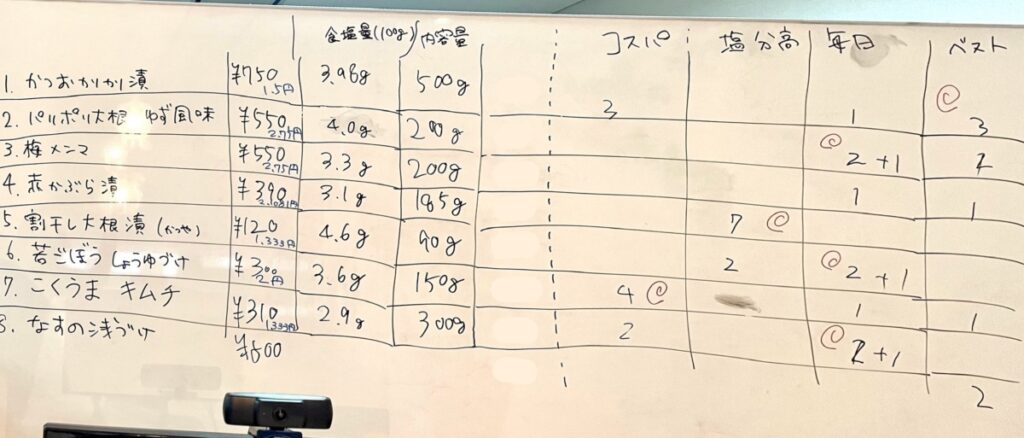 食塩量(100g) 内容量 コスパ 塩分高 毎日 ベスト
1. かつおかりかり漬 ¥750 1.5円 3.98g 500g 3 1 3
2. パリポリ大根 ゆず風味 ¥550 2.75円 4.0g 200g 2+1 1
3. 梅メンマ ¥550 2.75円 3.3g 200g 1 1
4. 赤かぶら漬 ¥390 2.1081円 3.1g 185g 7
5. 割干し大根漬(かつや) ¥120 1.333円 4.6g 90g 2 2+1
6. 若ごぼう しょうゆづけ ¥300 2円 3.6g 150g 4 1 1
7. こくうま キムチ ¥310 2.9g 300g 2 2+1
8. なすの浅づけ ¥600 2